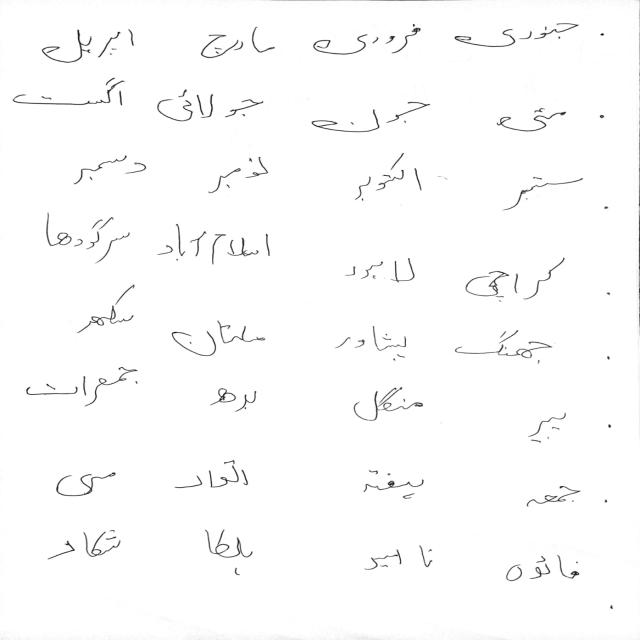 جنوری فروری مارچ اپریل
مئی جون جولائی اگست
ستمبر اکتوبر نومبر دسمبر
کراچی لاہور اسلام آباد سرگودھا
جھنگ پشاور ملتان سکھر
پیر منگل بدھ جمعرات
جمعہ ہفتہ اتوار
شکار